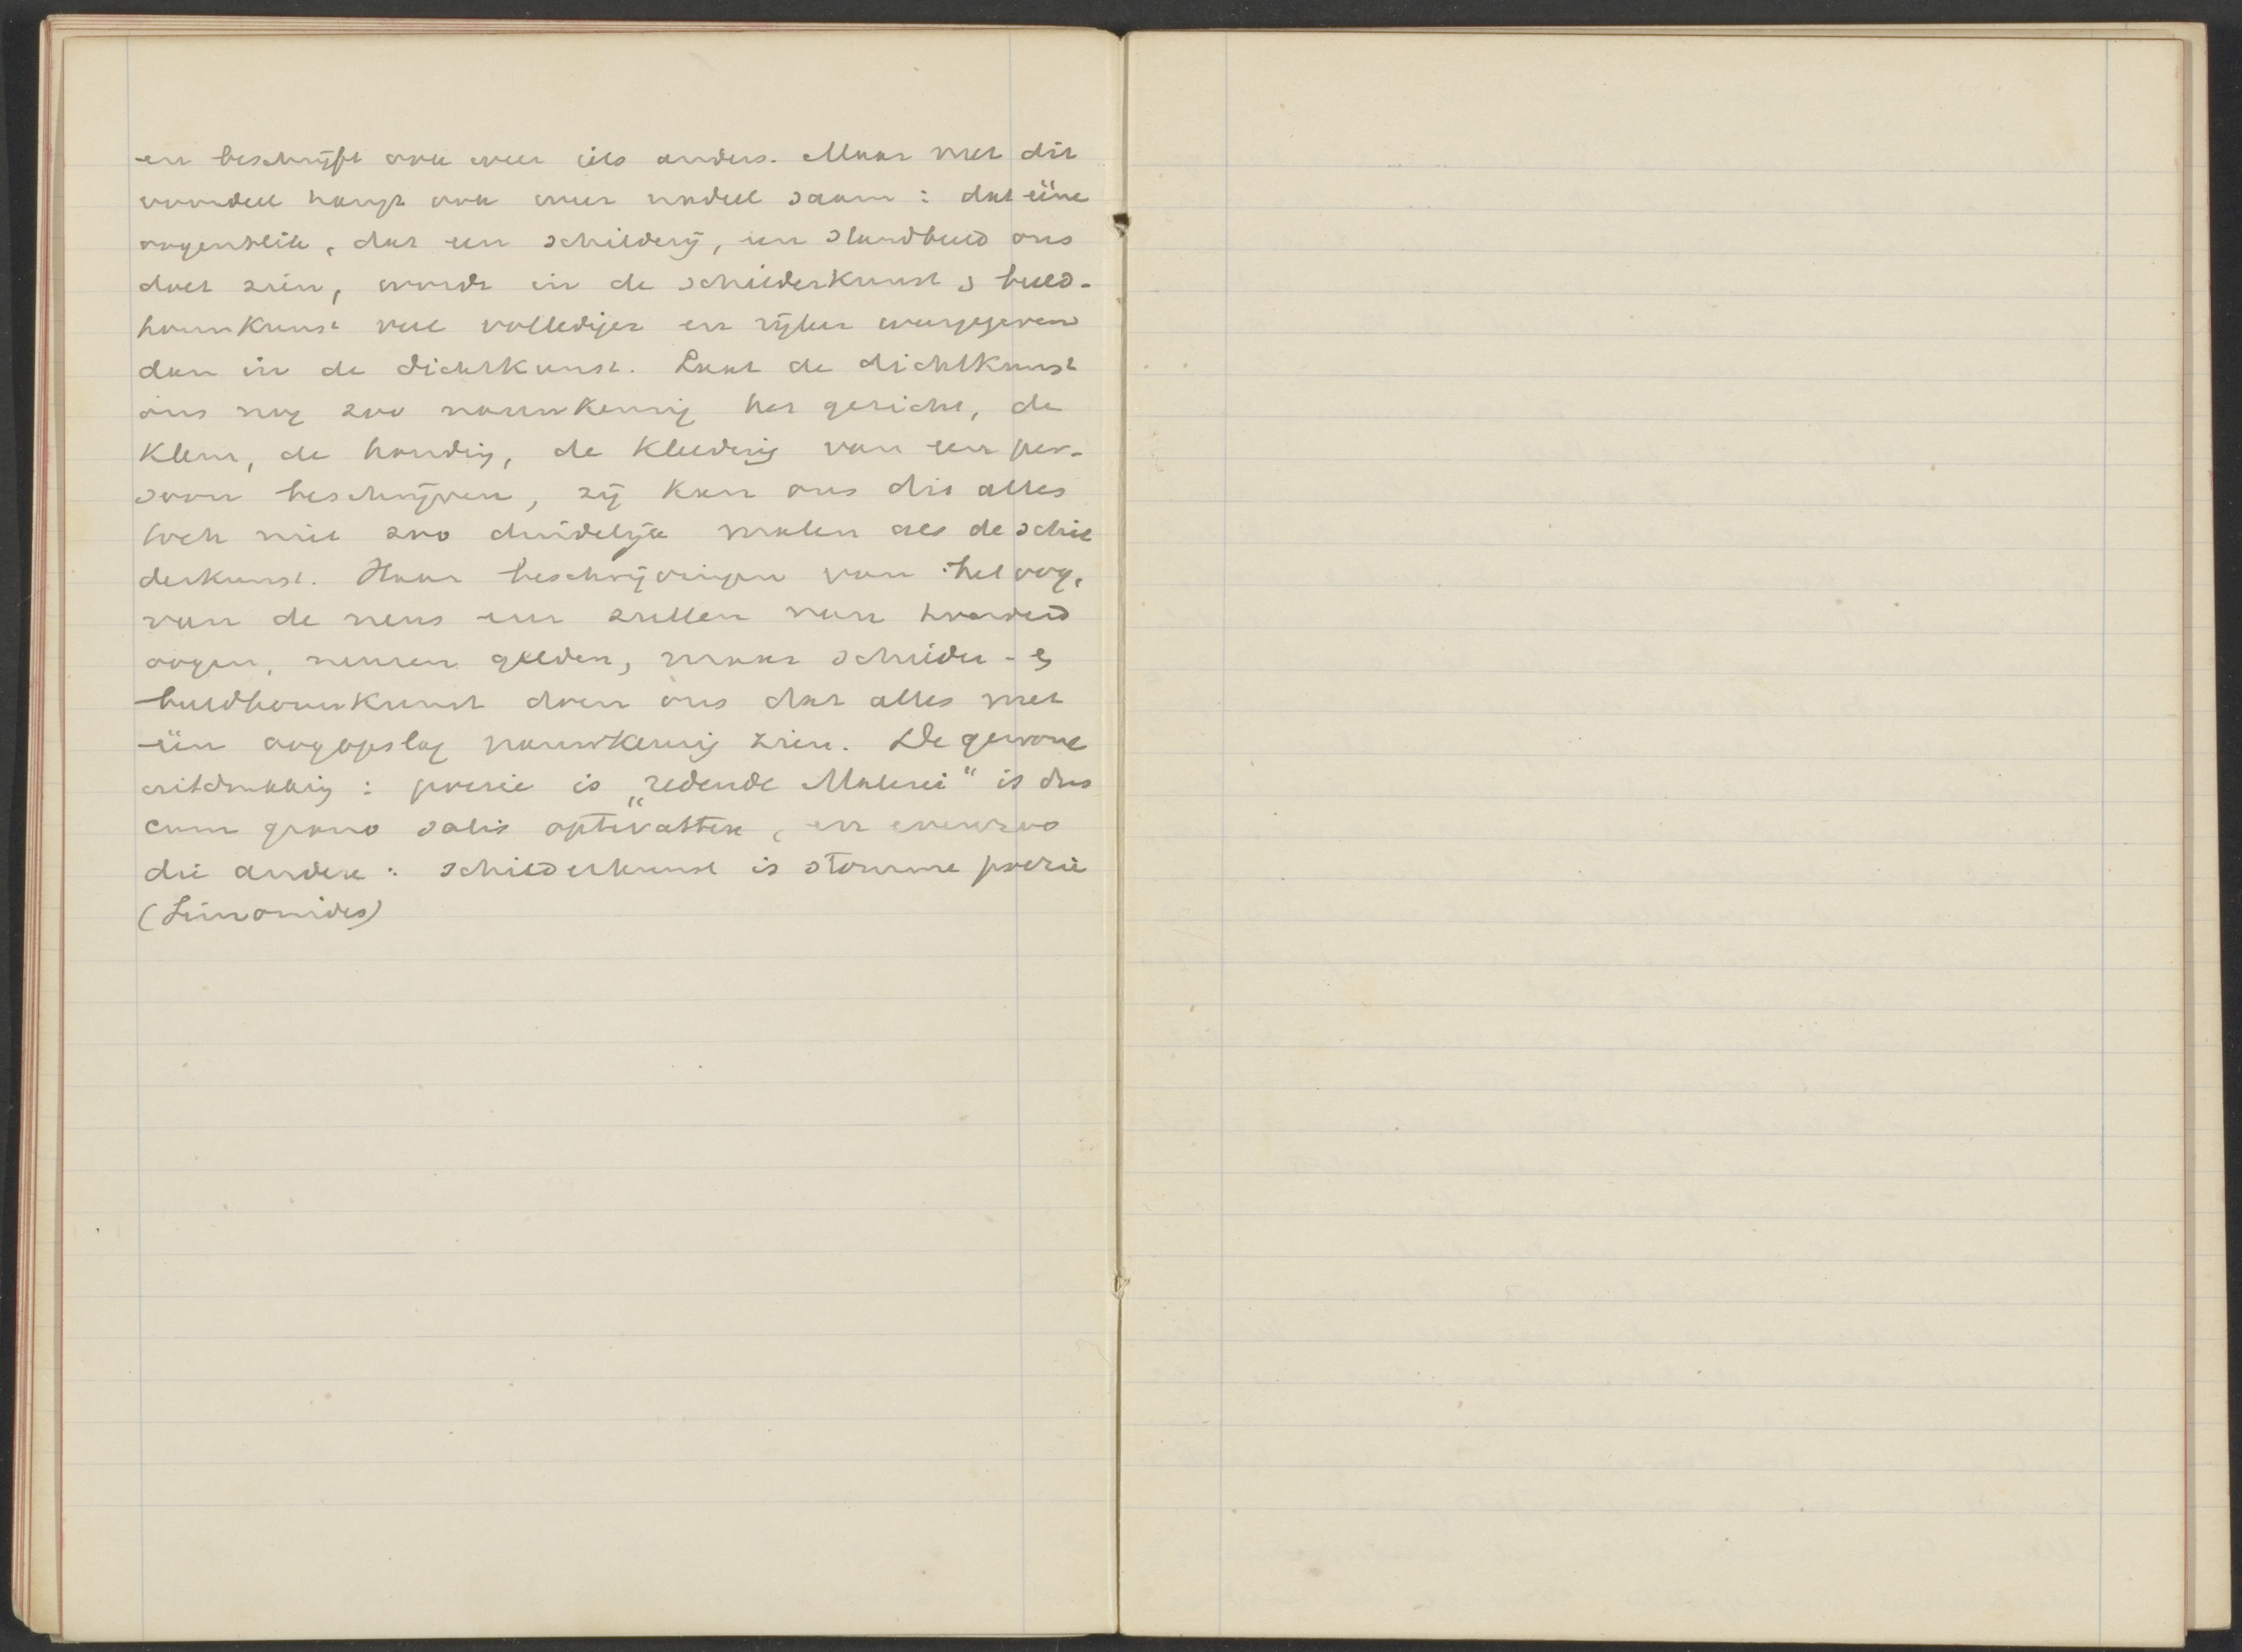 en beschrijft ook weer iets anders. Maar met dit
voordeel hangt ook weer nadeel saam : dat eene
oogenblik, dat een schilderij, een standbeeld ons
doet zien, wordt in de schilderkunst & beeld-
houwkunst veel vollediger en rijker weergegeven
dan in de dichtkunst. Laat de dichtkunst
ons nog zoo nauwkeurig het gezicht, de
kleur, de houdig, de kleedig van een per-
soon beschrijven, zij kan ons dit alles
toch niet zoo duidelijk malen als de schil
derkunst. Haar beschrijvingen van het oog,
van de neus enz zullen van honderd
oogen, neuzen gelden, maar schilder- &
beeldhouwkunst doen ons dat alles met
één oogopslag nauwkeurig zien. De gewone
uitdrukkig : poezie is „redende Malerei“ is dus
cum grano salis optevatten, en evenzoo
die andere : schilderkunst is stomme poezie
(Simonides)